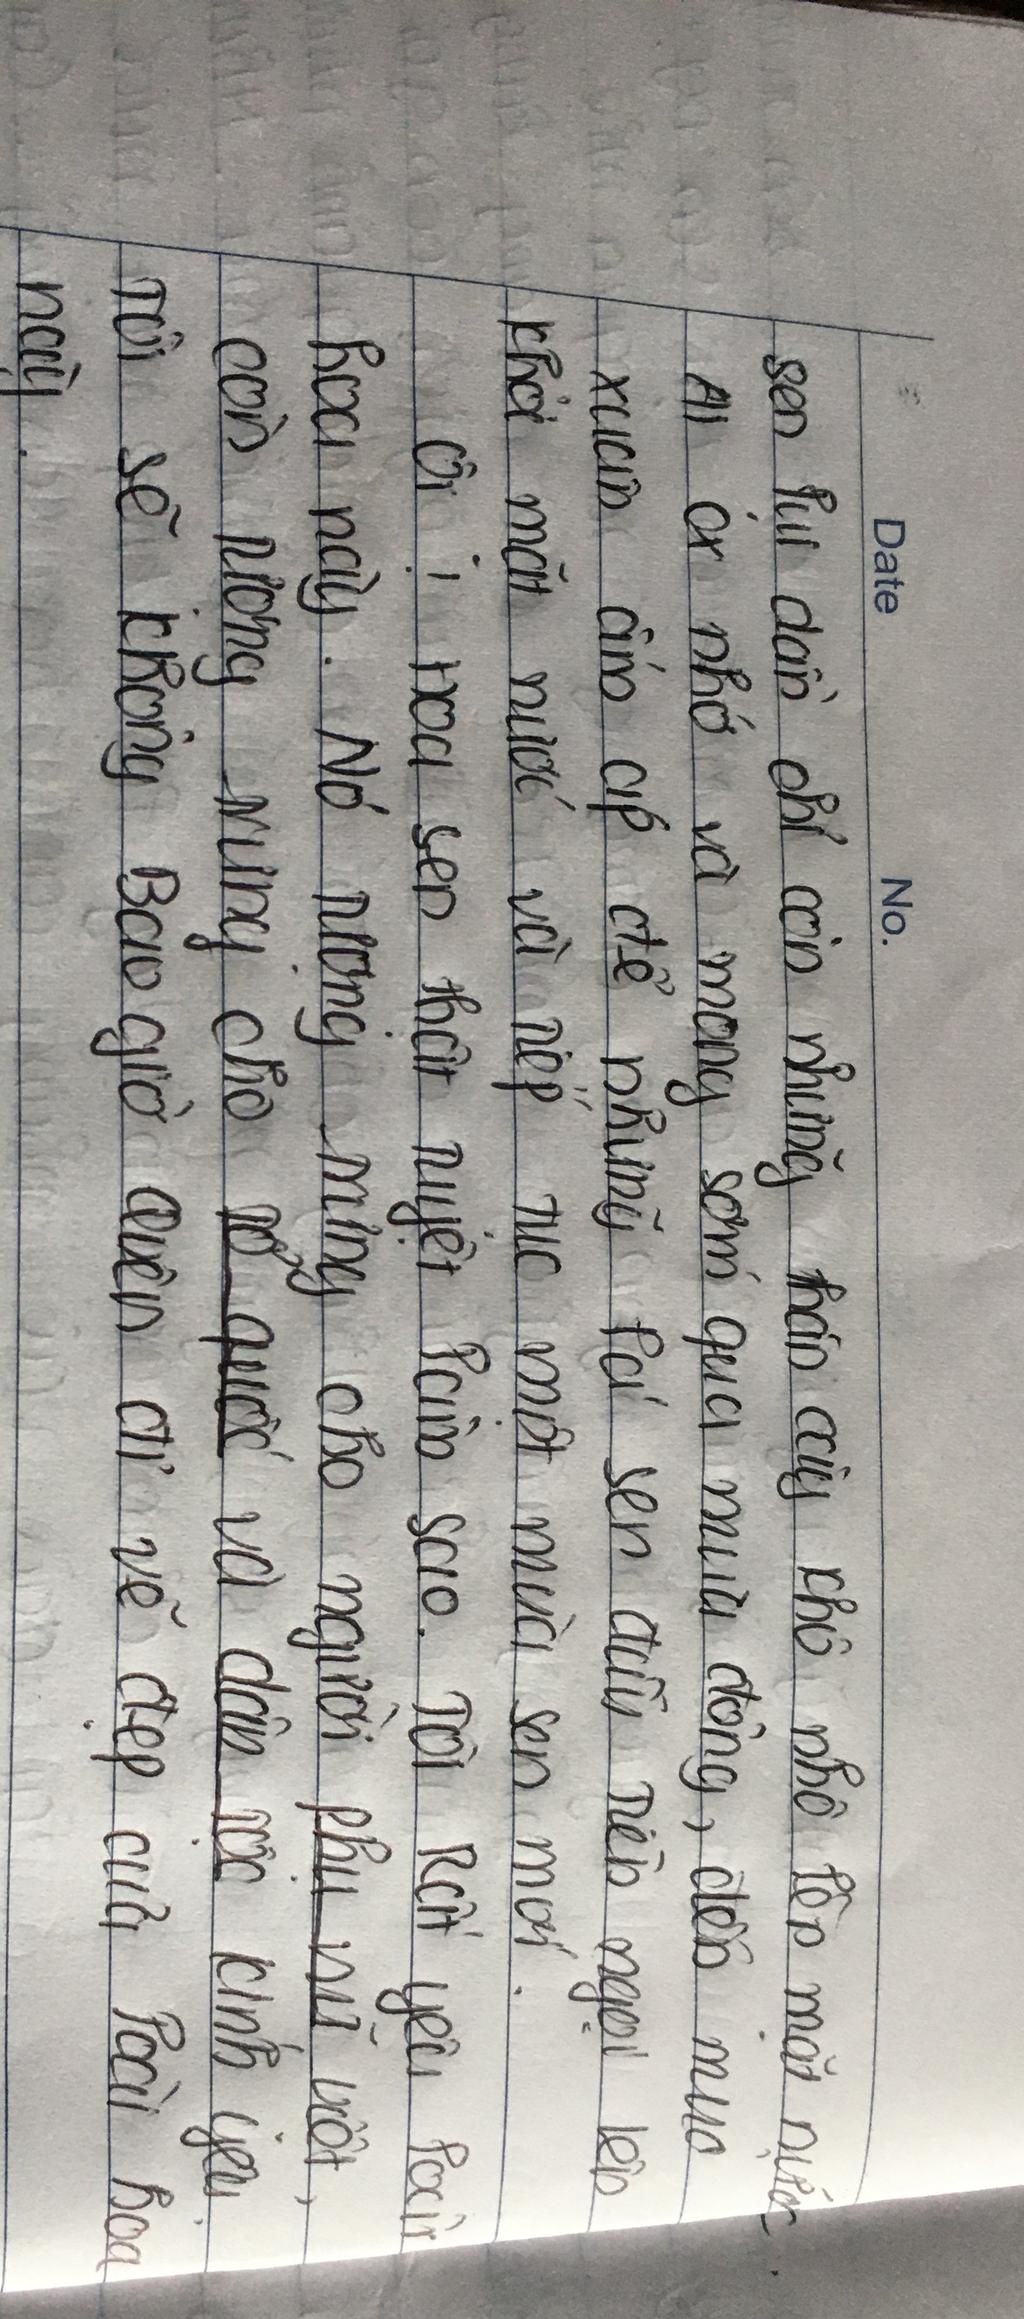 Date No.
sen lụi dần chỉ còn những thân cây khô nhô lên mặt nước.
Ai ơi nhớ và mong sớm qua mùa đông, đến mùa
xuân ấm áp để những lá sen đầu tiên ngoi lên
khỏi mặt nước và tiếp tục một mùa sen mới.
Ôi! Hoa sen thật tuyệt làm sao. Tôi Rất yêu loài
hoa này. Nó tượng trưng cho người phụ nữ việt,
còn tượng trưng cho tổ quốc và dân tộc kính yêu.
Tôi sẽ không Bao giờ Quên đi vẻ đẹp của loài hoa
này.